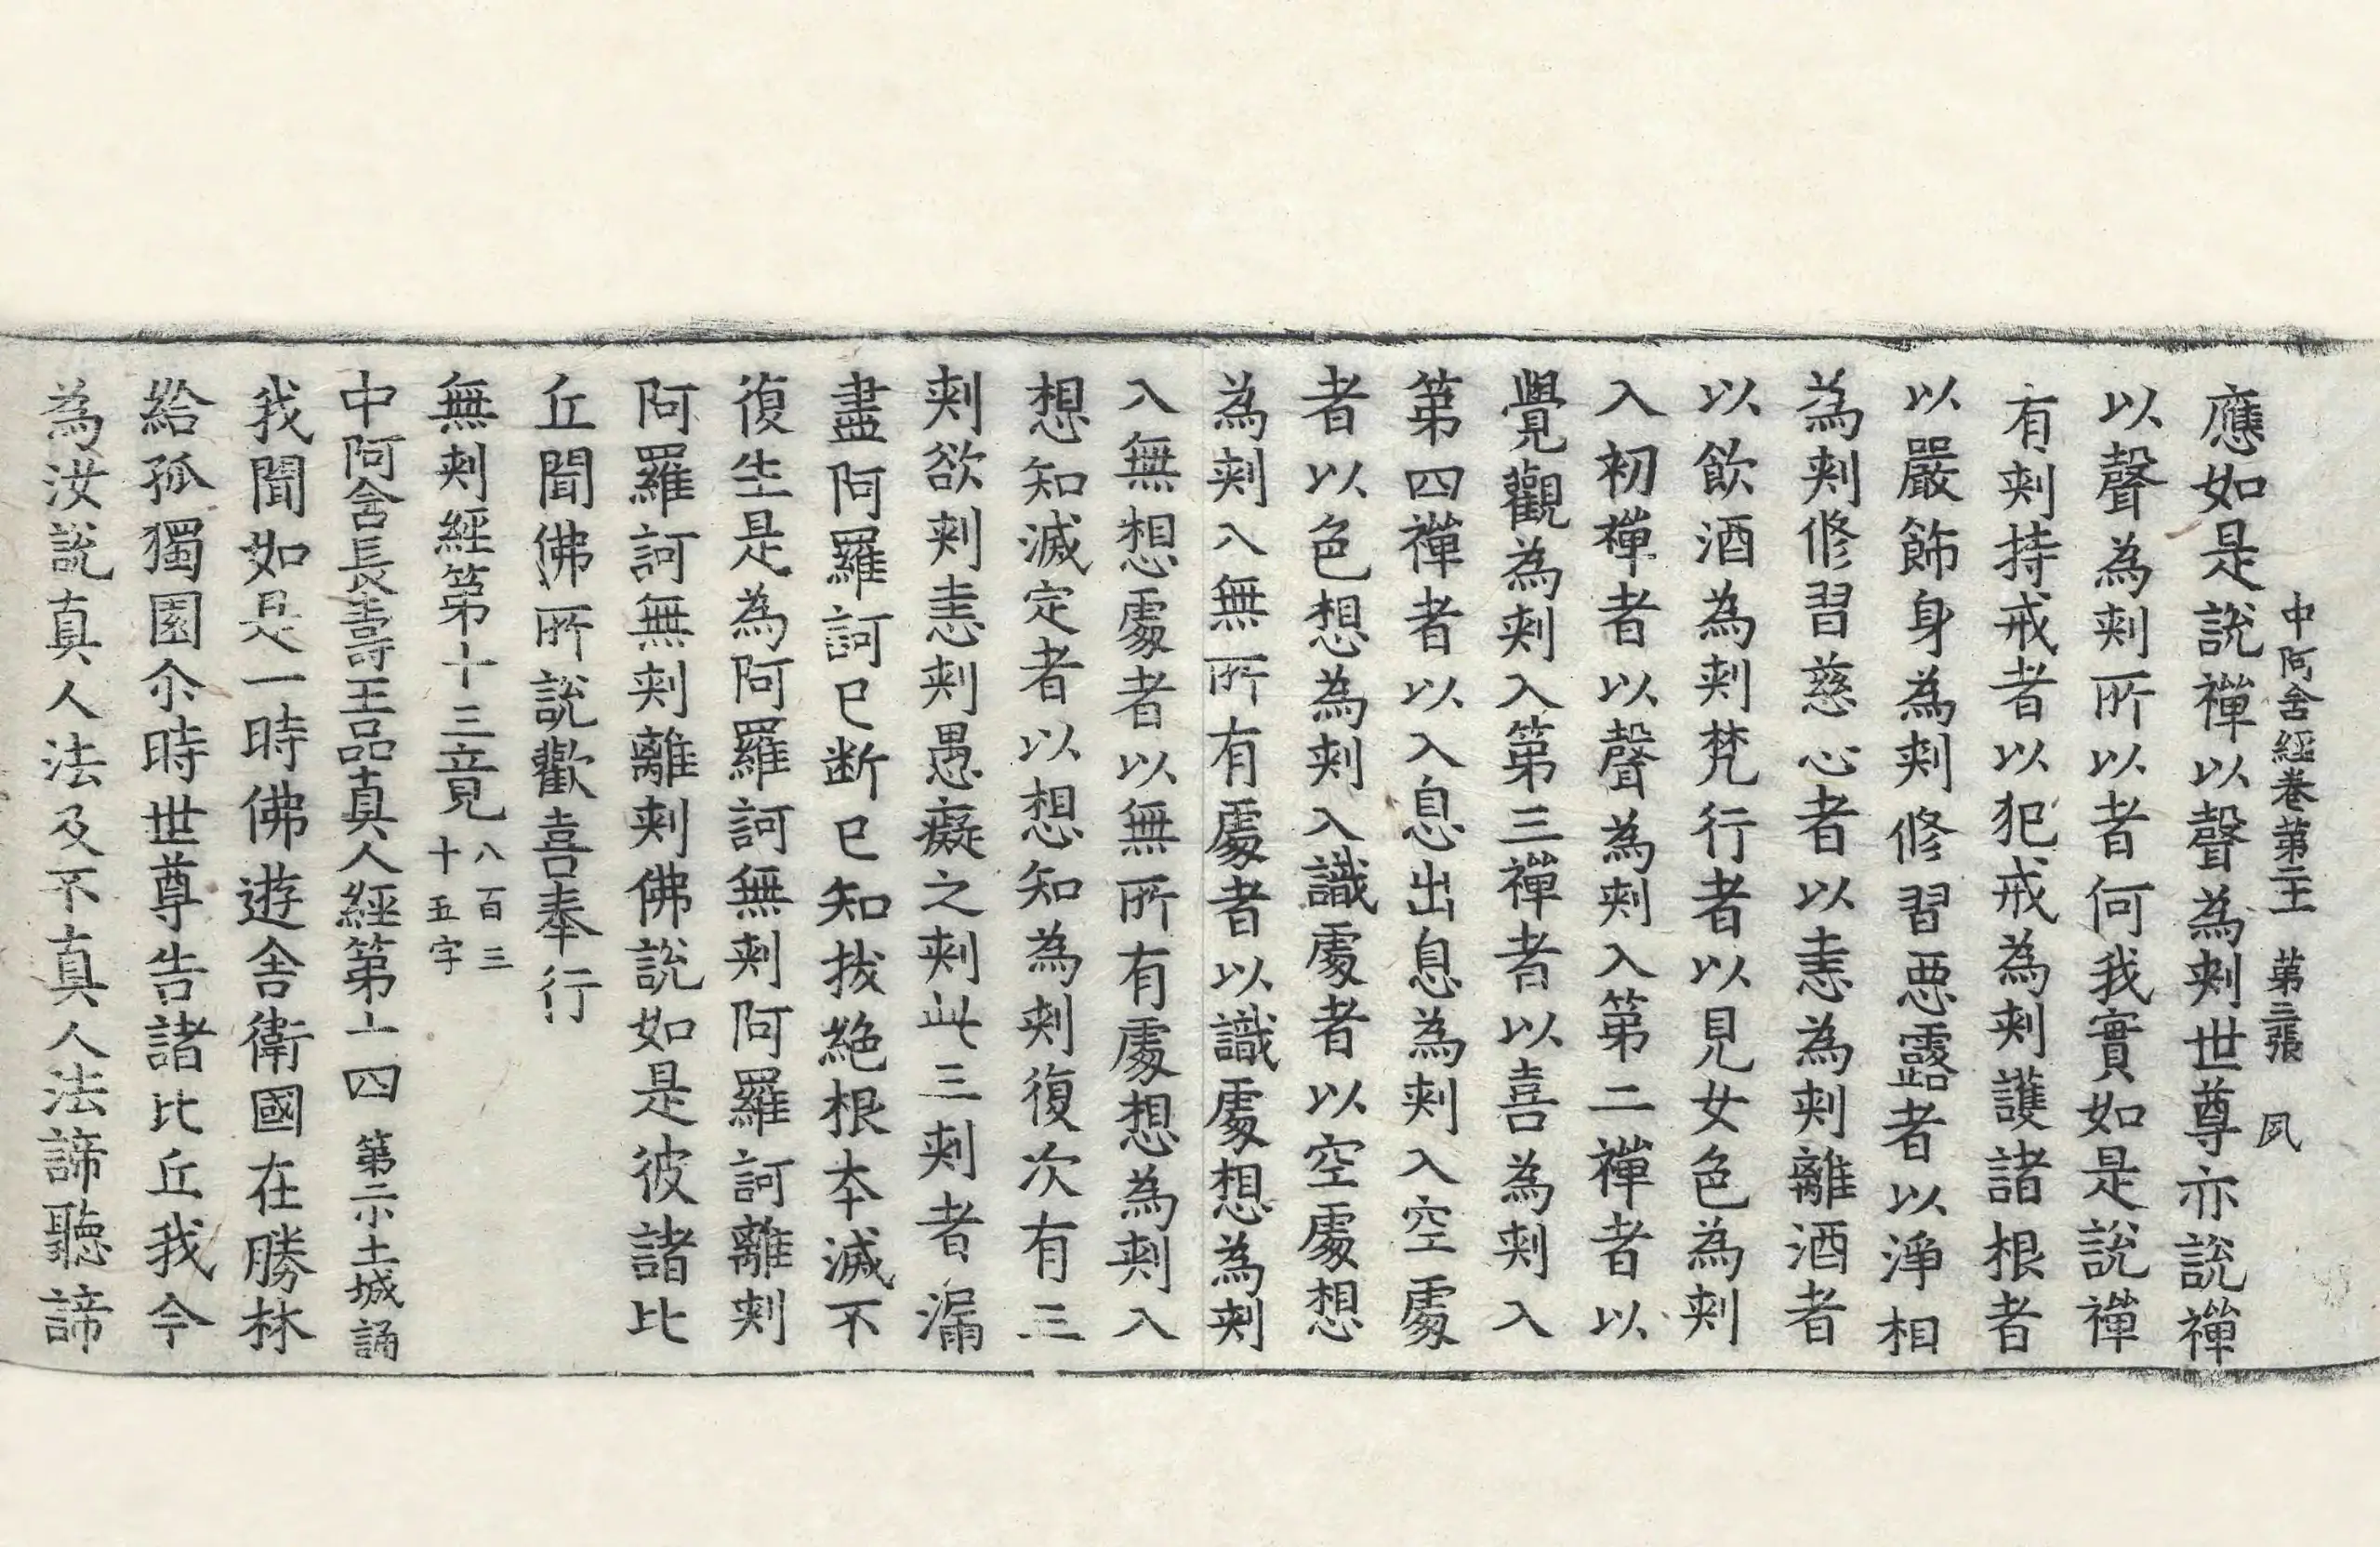 中阿含經卷第二十一 第三張 夙
應如是說禪以聲為刾世尊亦說禪
以聲為刾所以者何我實如是說禪
有刾持戒者以犯戒為刾護諸根者
以嚴飾身為刾修習惡露者以淨相
為刾修習慈心者以恚為刾離酒者
以飲酒為刾梵行者以見女色為刾
入初禪者以聲為刾入第二禪者以
覺觀為刾入第三禪者以喜為刾入
第四禪者以入息出息為刾入空處
者以色想為刾入識處者以空處想
為刾入無所有處者以識處想為刾
入無想處者以無所有處想為刾入
想知滅定者以想知為刾復次有三
刾欲刾恚刾愚癡之刾此三刾者漏
盡阿羅訶已断已知拔絶根本滅不
復生是為阿羅訶無刾阿羅訶離刾
阿羅訶無刾離刾佛說如是彼諸比
丘聞佛所說歡喜奉行
無刾經第十三竟 八百三十五字
中阿含長壽王品真人經第十四 第二小土城誦
我聞如是一時佛遊舍衛國在勝林
給孤獨園尒時世尊告諸比丘我今
為汝說真人法及不真人法諦聽諦